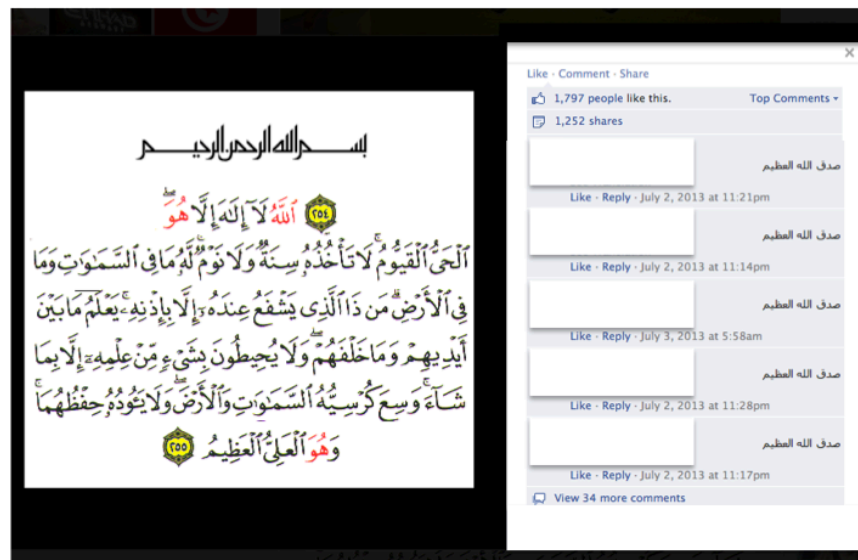 بسم الله الرحمن الرحيم
٢٥٤ ٱللَّهُ لَآ إِلَٰهَ إِلَّا هُوَۖ
ٱلْحَىُّ ٱلْقَيُّومُۚ لَا تَأْخُذُهُۥ سِنَةٌ وَلَا نَوْمٌۚ لَّهُۥ مَا فِى ٱلسَّمَٰوَٰتِ وَمَا
فِى ٱلْأَرْضِۗ مَن ذَا ٱلَّذِى يَشْفَعُ عِندَهُۥٓ إِلَّا بِإِذْنِهِۦۚ يَعْلَمُ مَا بَيْنَ
أَيْدِيهِمْ وَمَا خَلْفَهُمْۖ وَلَا يُحِيطُونَ بِشَىْءٍ مِّنْ عِلْمِهِۦٓ إِلَّا بِمَا
شَآءَۚ وَسِعَ كُرْسِيُّهُ ٱلسَّمَٰوَٰتِ وَٱلْأَرْضَۖ وَلَا يَـُٔودُهُۥ حِفْظُهُمَاۚ
وَهُوَ ٱلْعَلِىُّ ٱلْعَظِيمُ ٢٥٥
Like · Comment · Share
1,797 people like this. Top Comments
1,252 shares
صدق الله العظيم
Like · Reply · July 2, 2013 at 11:21pm
صدق الله العظيم
Like · Reply · July 2, 2013 at 11:14pm
صدق الله العظيم
Like · Reply · July 3, 2013 at 5:58am
صدق الله العظيم
Like · Reply · July 2, 2013 at 11:28pm
صدق الله العظيم
Like · Reply · July 2, 2013 at 11:17pm
View 34 more comments